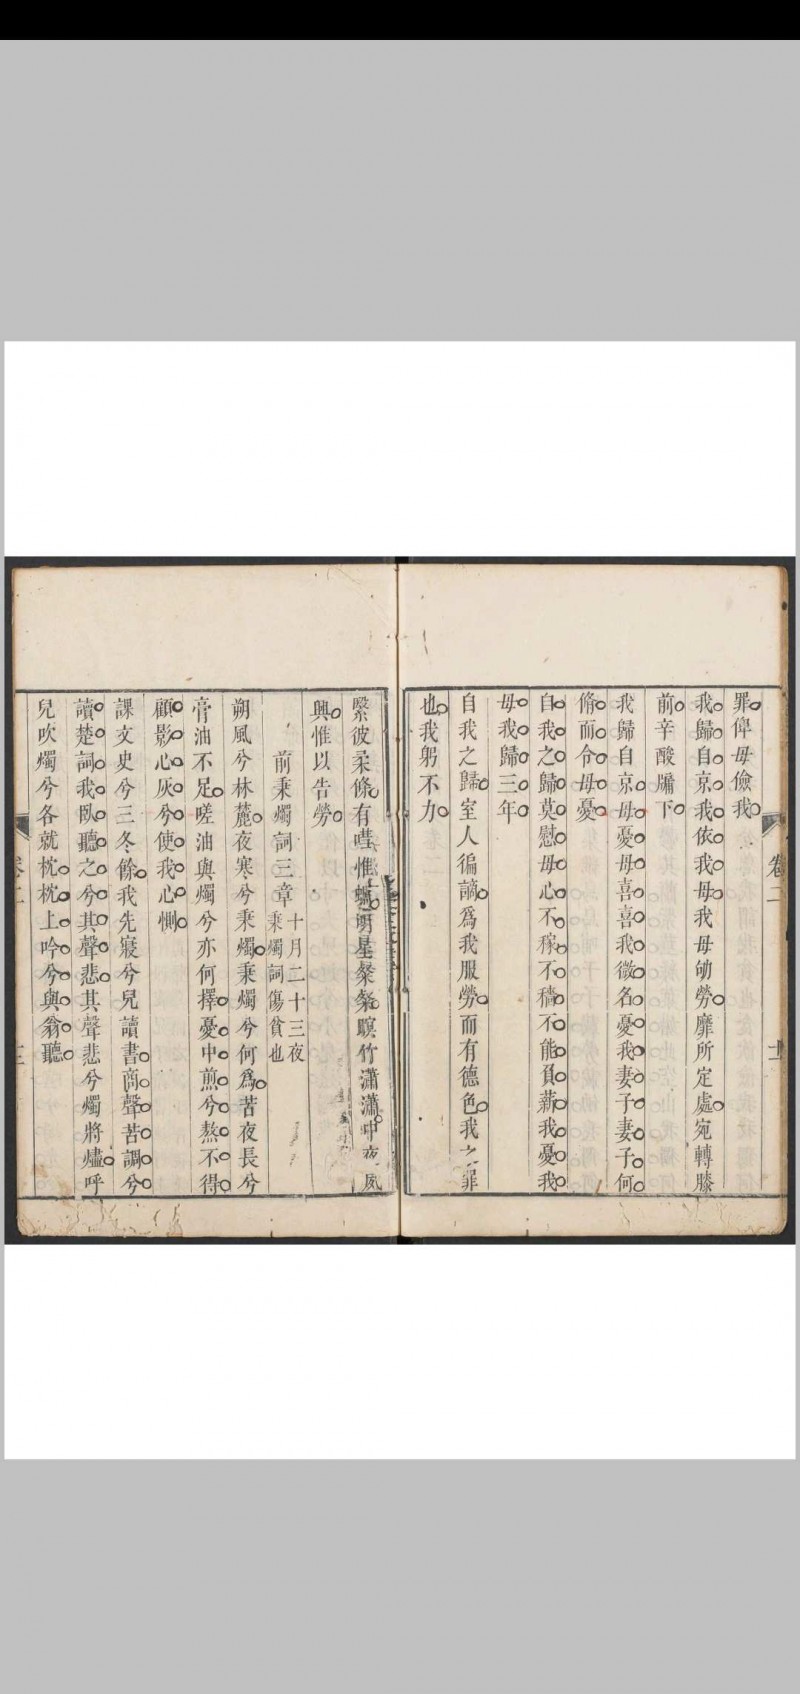 罪俾母儉我
我歸自京我依我母我母劬勞靡所定處宛轉膝
前辛酸牖下
我歸自京母憂母喜喜我徵名憂我妻子妻子何
脩而令母憂
自我之歸莫慰母心不稼不穡不能負薪我憂我
母我歸三年
自我之歸室人徧謫為我服勞而有德色我之罪
也我躬不力
卷二
緊彼柔條有嘒惟蜩明星粲粲瞑竹瀟瀟中夜風
興惟以告勞
前秉燭詞三章
十月二十三夜
秉燭詞傷貧也
朔風兮林麓夜寒兮秉燭秉燭兮何為苦夜長兮
膏油不足嗟油與燭兮亦何擇憂中煎兮熬不得
顧影心灰兮使我心惻
課文史兮三冬餘我先寢兮兒讀書商聲苦調兮
讀楚詞我臥聽之兮其聲悲其聲悲兮燭將燼呼
兒吹燭兮各就枕枕上吟兮與翁聽
卷二